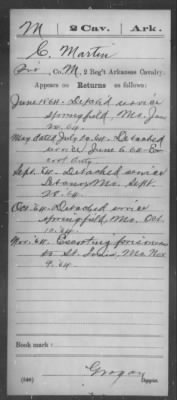 M 2 Cav. Ark.
C. Martin
Co. M, 2 Reg't Arkansas Cavalry.
Appears on Returns as follows:
June 1864. Detached service
Springfield, Mo. Jan
20.64
May dated July 20.64. Detached
service June 6.64. Es-
cort duty
Sept. 64. Detached service
Lebanon, Mo. Sept.
20.64
Oct. 64. Detached service
Springfield, Mo. Oct.
10.64
Nov. 64. Escorting prisoners
to St. Louis, Mo. Nov
9.64
Book mark:
(546)
Grogan
Copyist.